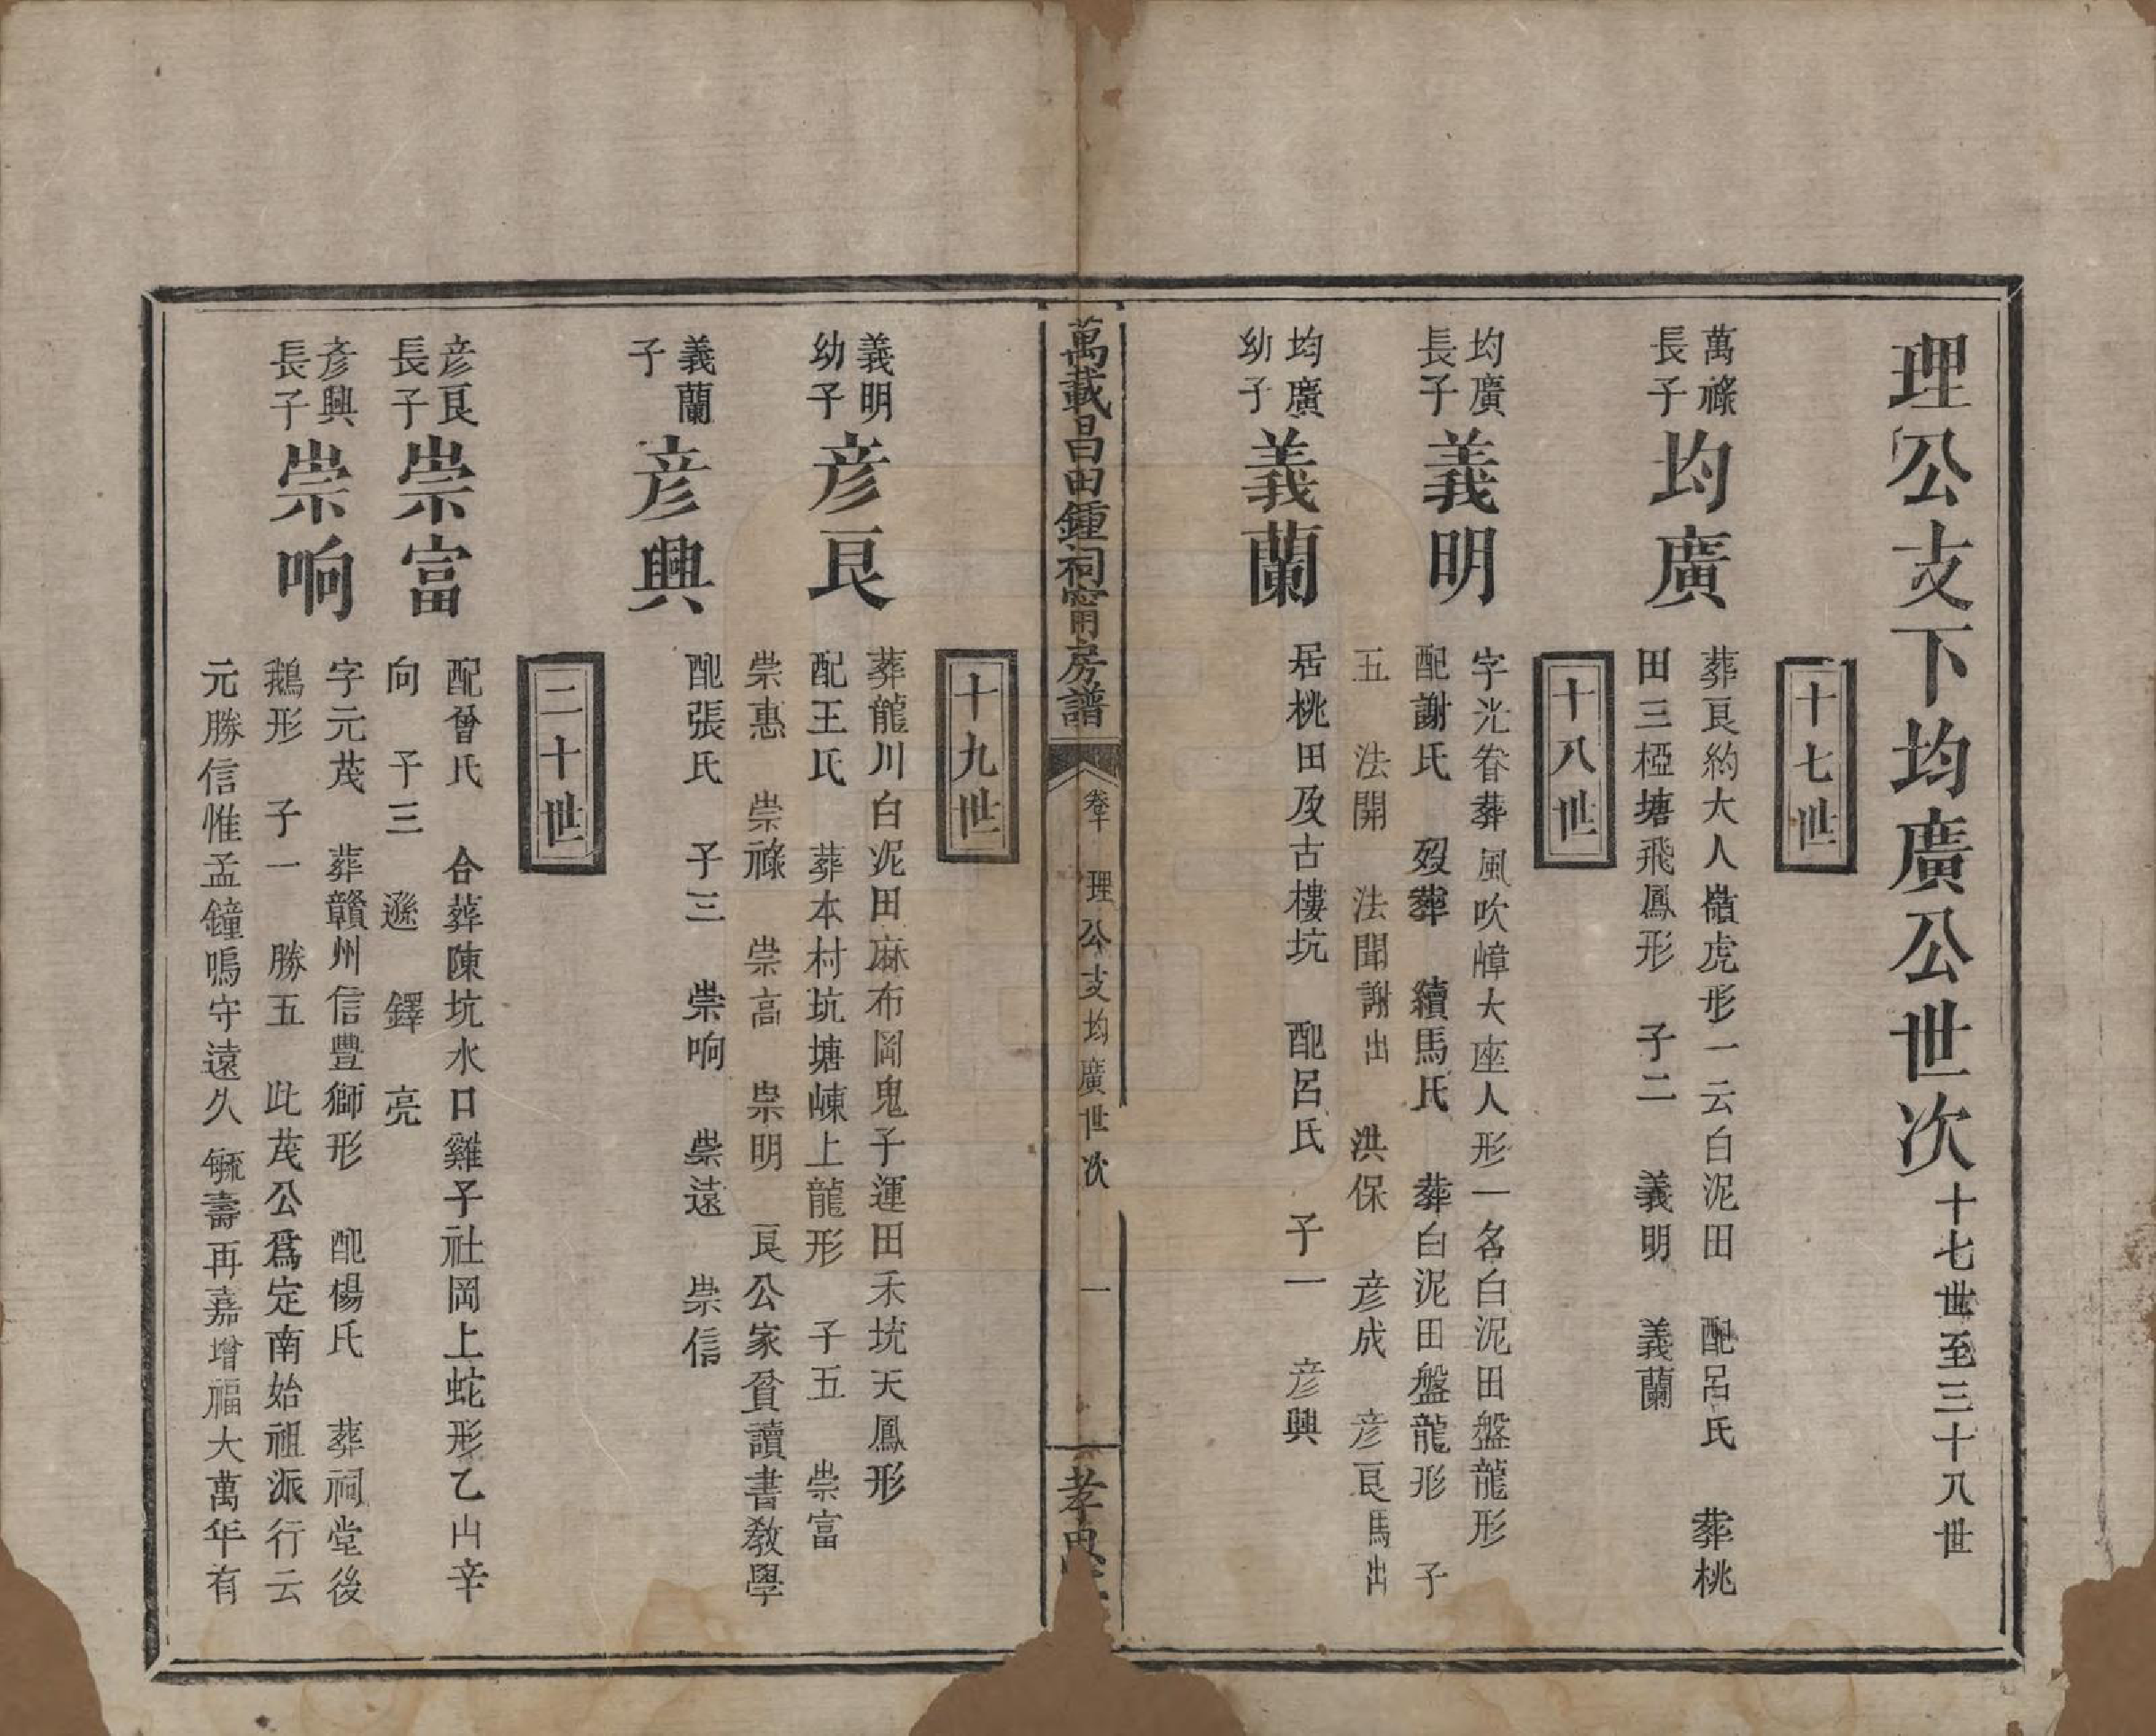 理公支下均廣公世次十七世至三十八世
十七世
萬祿長子 均廣
葬良約大人嶺虎形一云白泥田 配呂氏 葬桃
田三椏塘飛鳳形 子二 義明 義蘭
十八世
均廣長子 義明
字光眷葬風吹嶂大座人形一名白泥田盤龍形
配謝氏 歿葬 續馬氏 葬白泥田盤龍形 子
五 法開 法聞謝出 洪保 彥成 彥良馬出
均廣幼子 義蘭
居桃田及古樓坑 配呂氏 子一 彥興
萬載昌田鍾祠甯房譜 卷十 理公支均廣世次 一 孝思
十九世
義明幼子 彥良
葬龍川白泥田麻布岡鬼子運田禾坑天鳳形
配王氏 葬本村坑塘崠上龍形 子五 崇富
崇惠 崇祿 崇高 崇明 良公家貧讀書教學
義蘭子 彥興
配張氏 子三 崇响 崇遠 崇信
二十世
彥良長子 崇富
配曾氏 合葬陳坑水口雞子社岡上蛇形乙山辛
向 子三 遜 鐸 亮
彥興長子 崇响
字元茂 葬贛州信豐獅形 配楊氏 葬祠堂後
鵝形 子一 勝五 此茂公爲定南始祖派行云
元勝信惟孟鐘鳴守遠久毓壽再嘉增福大萬年有